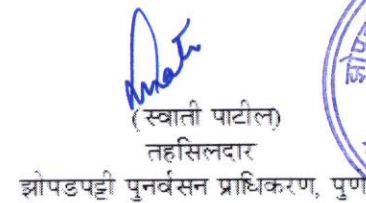 (स्वाती पाटील)
तहसिलदार
झोपडपट्टी पुनर्वसन प्राधिकरण,